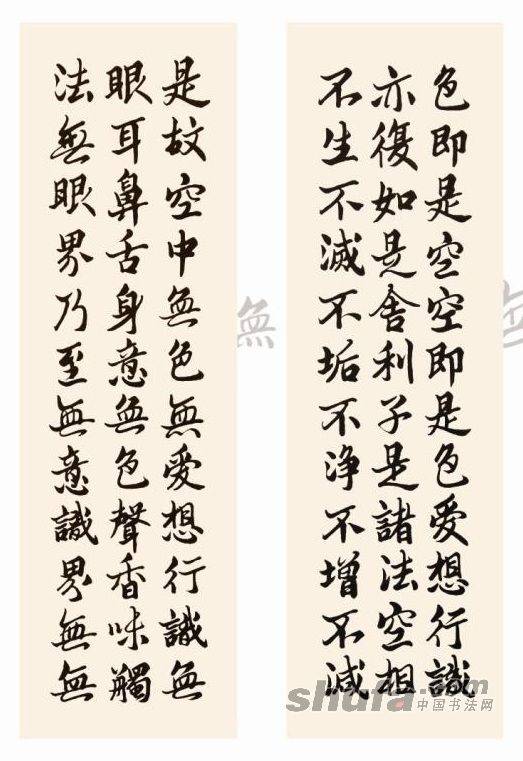 色即是空空即是色愛想行識
亦復如是舍利子是諸法空相
不生不滅不垢不淨不增不減
是故空中無色無愛想行識無
眼耳鼻舌身意無色聲香味觸
法無眼界乃至無意識界無無
無
shufa.com
中国书法网